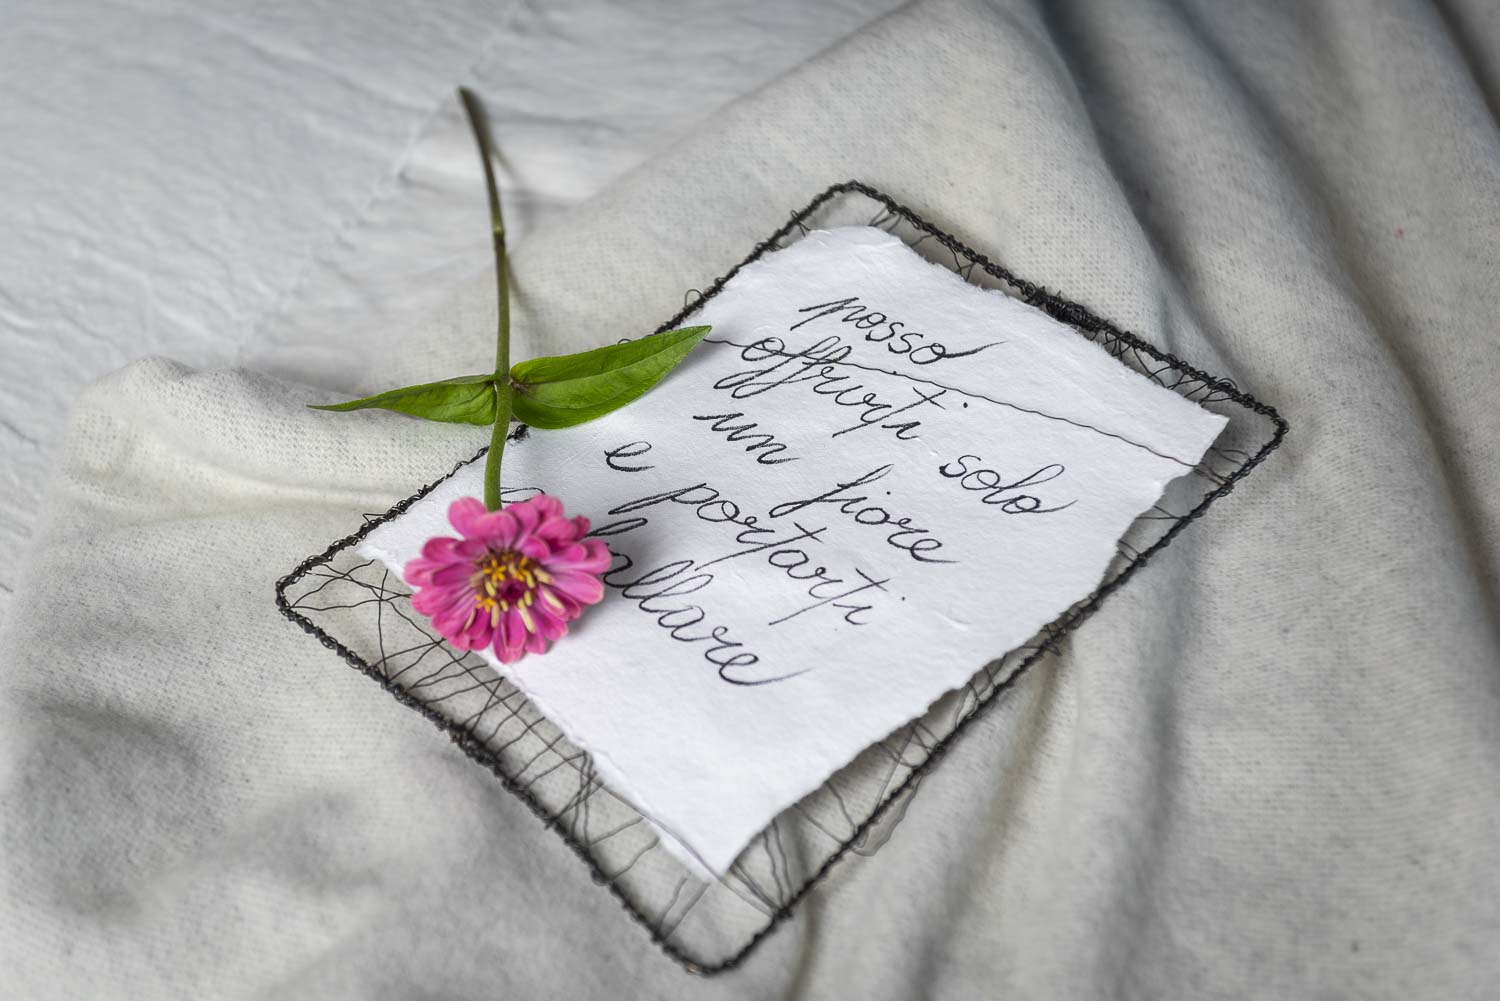 posso
offrirti solo
un fiore
e portarti
ballare